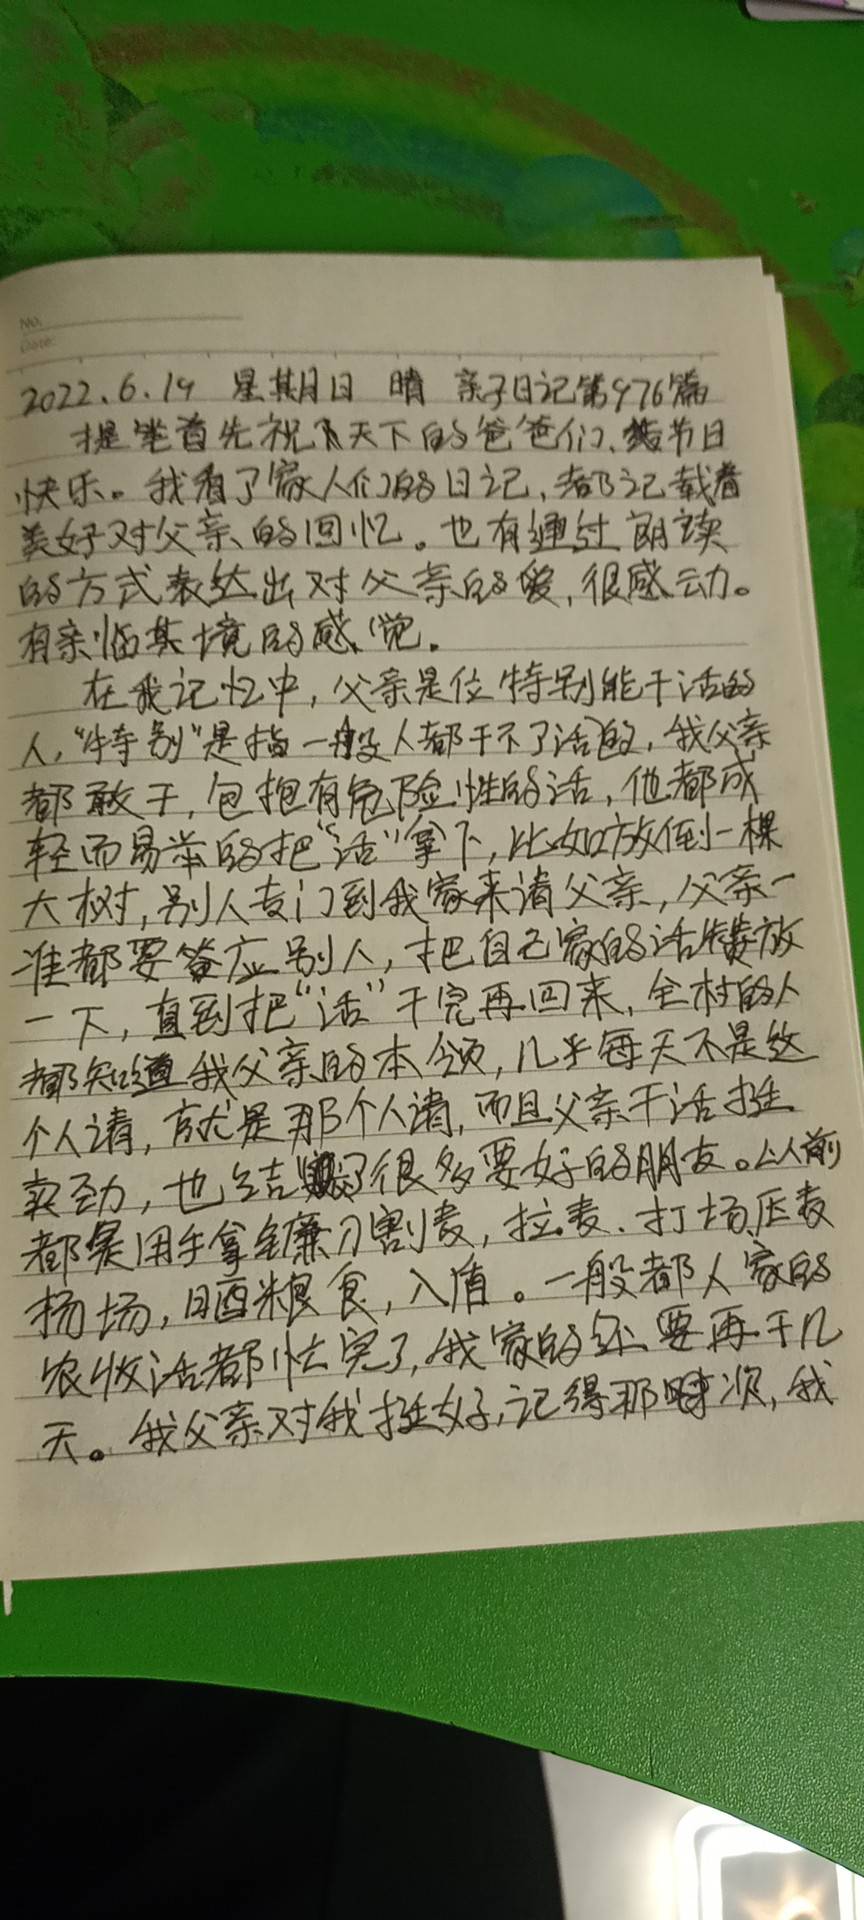 No.
Date:
2022.6.19 星期日 晴 亲子日记第976篇
首先祝天下的爸爸们、节日
快乐。我看了家人们的日记，都记载着
美好对父亲的回忆。也有通过朗读
的方式表达出对父亲的爱，很感动。
有亲临其境的感觉。
在我记忆中，父亲是位特别能干活的
人，“特别”是指一般人都干不了活的，我父亲
都敢干，包抱有危险性的活，他都成
轻而易举的把“活”拿下，比如放倒一棵
大树，别人专门到我家来请父亲，父亲一
准都要答应别人，把自己家的活放
一下，直到把“活”干完再回来，全村的人
都知道我父亲的本领，几乎每天不是这
个人请，就是那个人请，而且父亲干活挺
卖劲，也结了很多要好的朋友。以前
都是用手拿镰刀割麦，拉麦、打场压麦
扬场，晒粮食，入盾。一般都人家的
农收活都忙完了，我家的还要再干几
天。我父亲对我挺好，记得那次，我